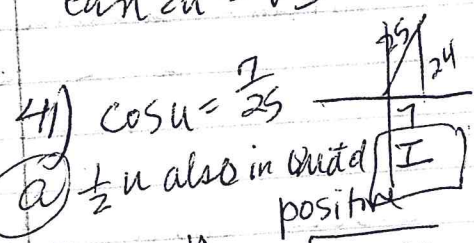 41) cos u = 7/25
25 24
7
a) 1/2 u also in Quad I
positive